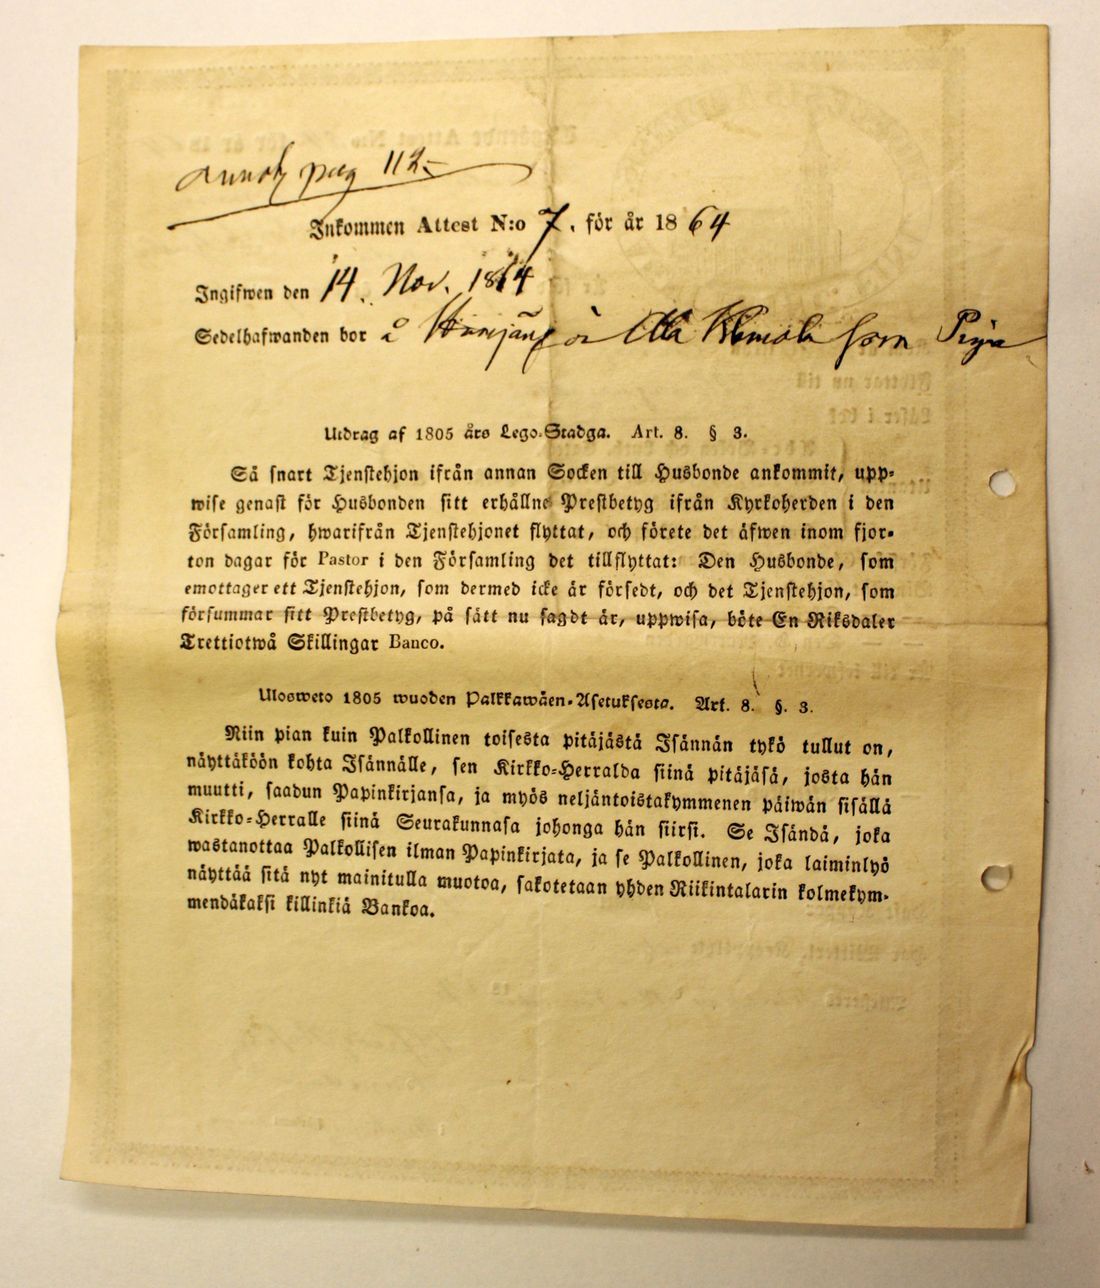 pag 112.
Inkommen Attest N:o 7, för år 1864
Ingifwen den 14. Nov. 1864
Sedelhafwanden bor å som Piga
Utdrag af 1805 års Lego-Stadga. Art. 8. § 3.
Så snart Tjenstehjon ifrån annan Socken till Husbonde ankommit, upp-
wise genast för Husbonden sitt erhållne Prestbetyg ifrån Kyrkoherden i den
Församling, hwarifrån Tjenstehjonet flyttat, och förete det äfwen inom fjor-
ton dagar för Pastor i den Församling det tillflyttat: Den Husbonde, som
emottager ett Tjenstehjon, som dermed icke är försedt, och det Tjenstehjon, som
försummar sitt Prestbetyg, på sätt nu sagdt är, uppwisa, böte En Riksdaler
Trettiotwå Skillingar Banco.
Ulosweto 1805 wuoden Palkkawäen-Asetuksesta. Art. 8. §. 3.
Niin pian kuin Palkollinen toisesta pitäjästä Isännän tykö tullut on,
näyttäköön kohta Isännälle, sen Kirkko-Herralda siinä pitäjäsä, josta hän
muutti, saadun Papinkirjansa, ja myös neljäntoistakymmenen päiwän sisällä
Kirkko-Herralle siinä Seurakunnasa johonga hän siirsi. Se Isändä, joka
wastanottaa Palkollisen ilman Papinkirjata, ja se Palkollinen, joka laiminlyö
näyttää sitä nyt mainitulla muotoa, sakotetaan yhden Riikintalarin kolmekym-
mendäkaksi killinkiä Bankoa.